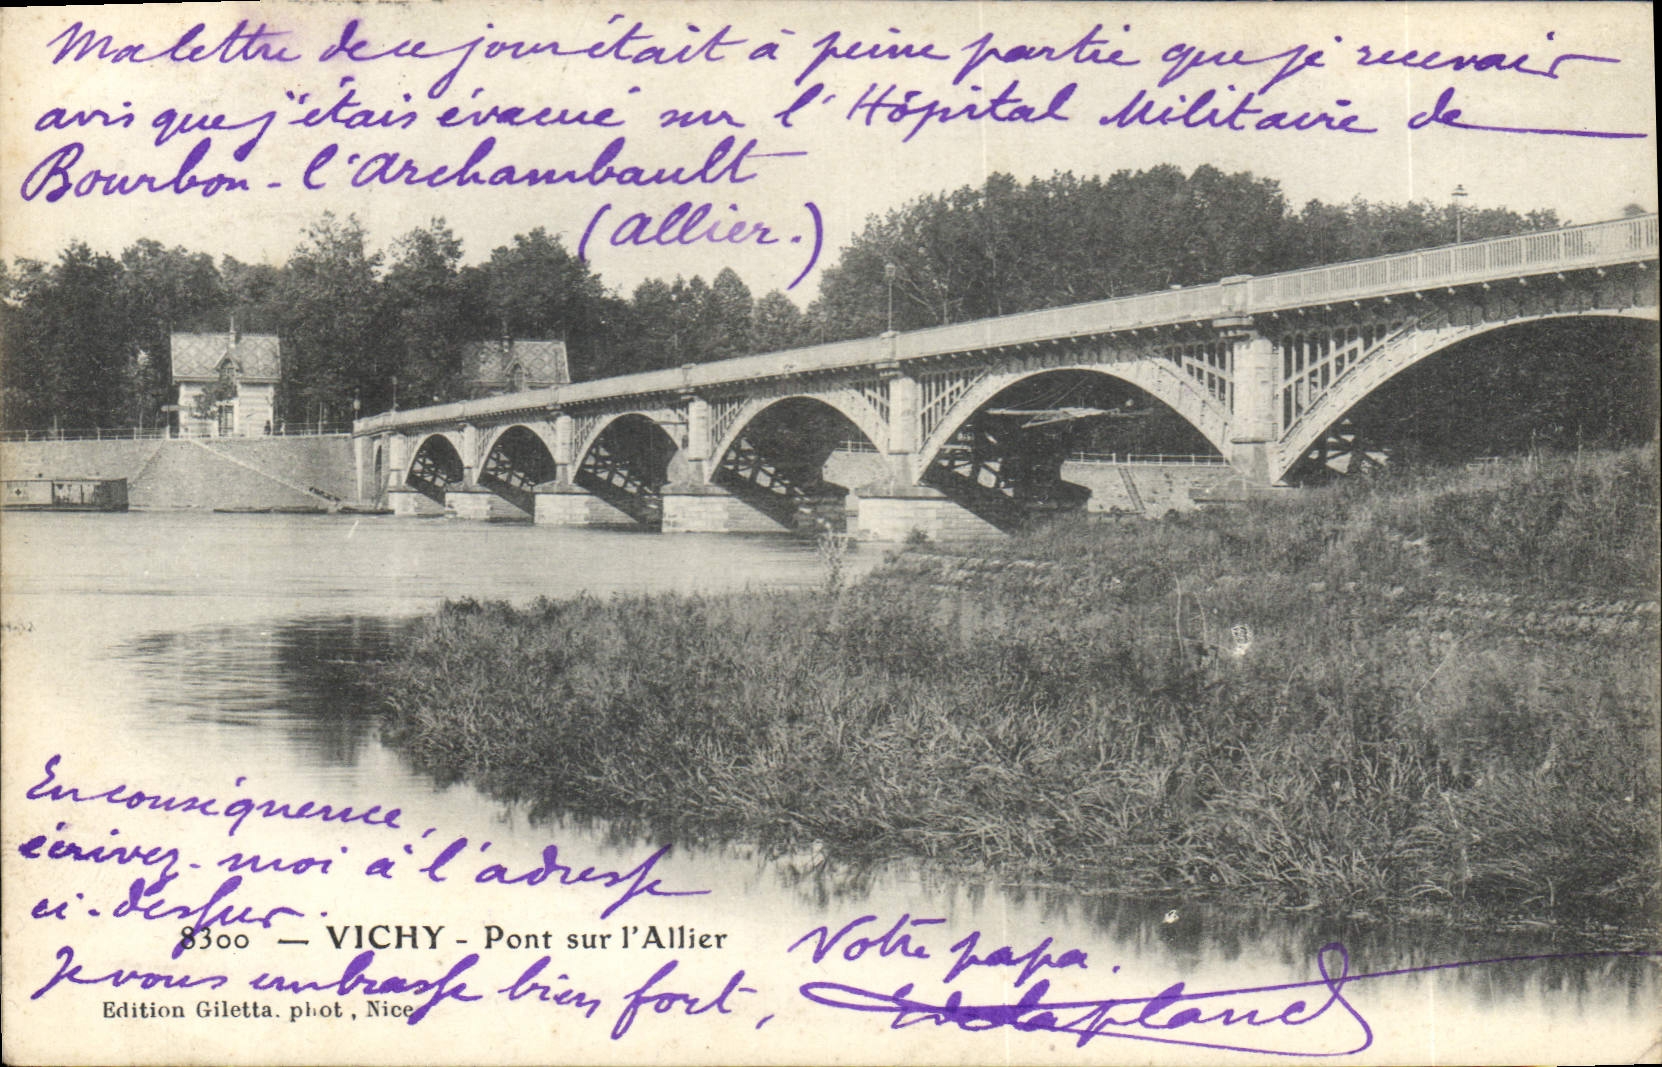 Ma lettre de ce jour était à peine partie que je recevais
avis que j'étais évacué sur l'Hôpital Militaire de
Bourbon-l'Archambault
(Allier.)
En conséquence,
écrivez-moi à l'adresse
ci-dessus.
8300 — VICHY - Pont sur l'Allier
Je vous embrasse bien fort,
Votre papa.
Edition Giletta. phot, Nice